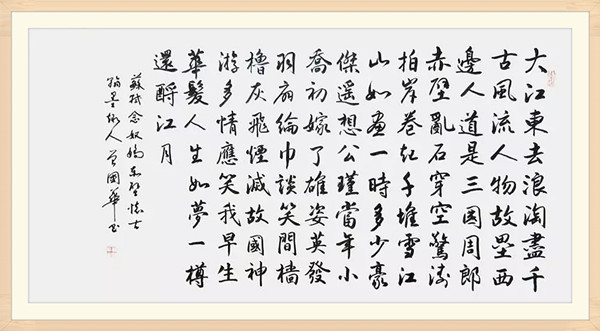 大江東去浪淘盡千
古風流人物故壘西
邊人道是三国周郎
赤壁亂石穿空驚濤
拍岸卷起千堆雪江
山如畫一時多少豪
傑遥想公瑾當年小
喬初嫁了雄姿英發
羽扇綸巾談笑間檣
櫓灰飛煙滅故國神
游多情應笑我早生
華髮人生如夢一樽
還酹江月
蘇軾念奴嬌赤壁懷古
翰墨人曾國華書